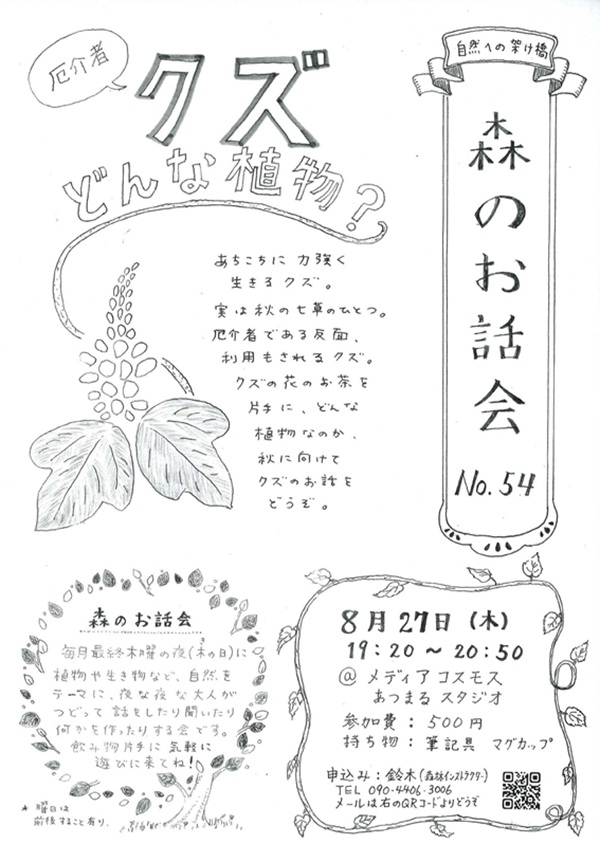 自然への架け橋
森のお話会
No.54
厄介者
クズ
どんな植物？
あちこちに力強く
生きるクズ。
実は秋の七草のひとつ。
厄介者である反面、
利用もされるクズ。
クズの花のお茶を
片手に、どんな
植物なのか、
秋に向けて
クズのお話を
どうぞ。
森のお話会
毎月最終木曜の夜(木の日)に
植物や生き物など、自然を
テーマに、夜な夜な大人が
つどって話をしたり聞いたり
何かを作ったりする会です。
飲み物片手に気軽に
遊びに来てね！
★曜日は
前後すること有り。
8月27日（木）
19：20～20：50
@メディアコスモス
あつまるスタジオ
参加費：500円
持ち物：筆記具 マグカップ
申込み：鈴木(森林インストラクター)
TEL 090-4406-3006
メールは右のQRコードよりどうぞ